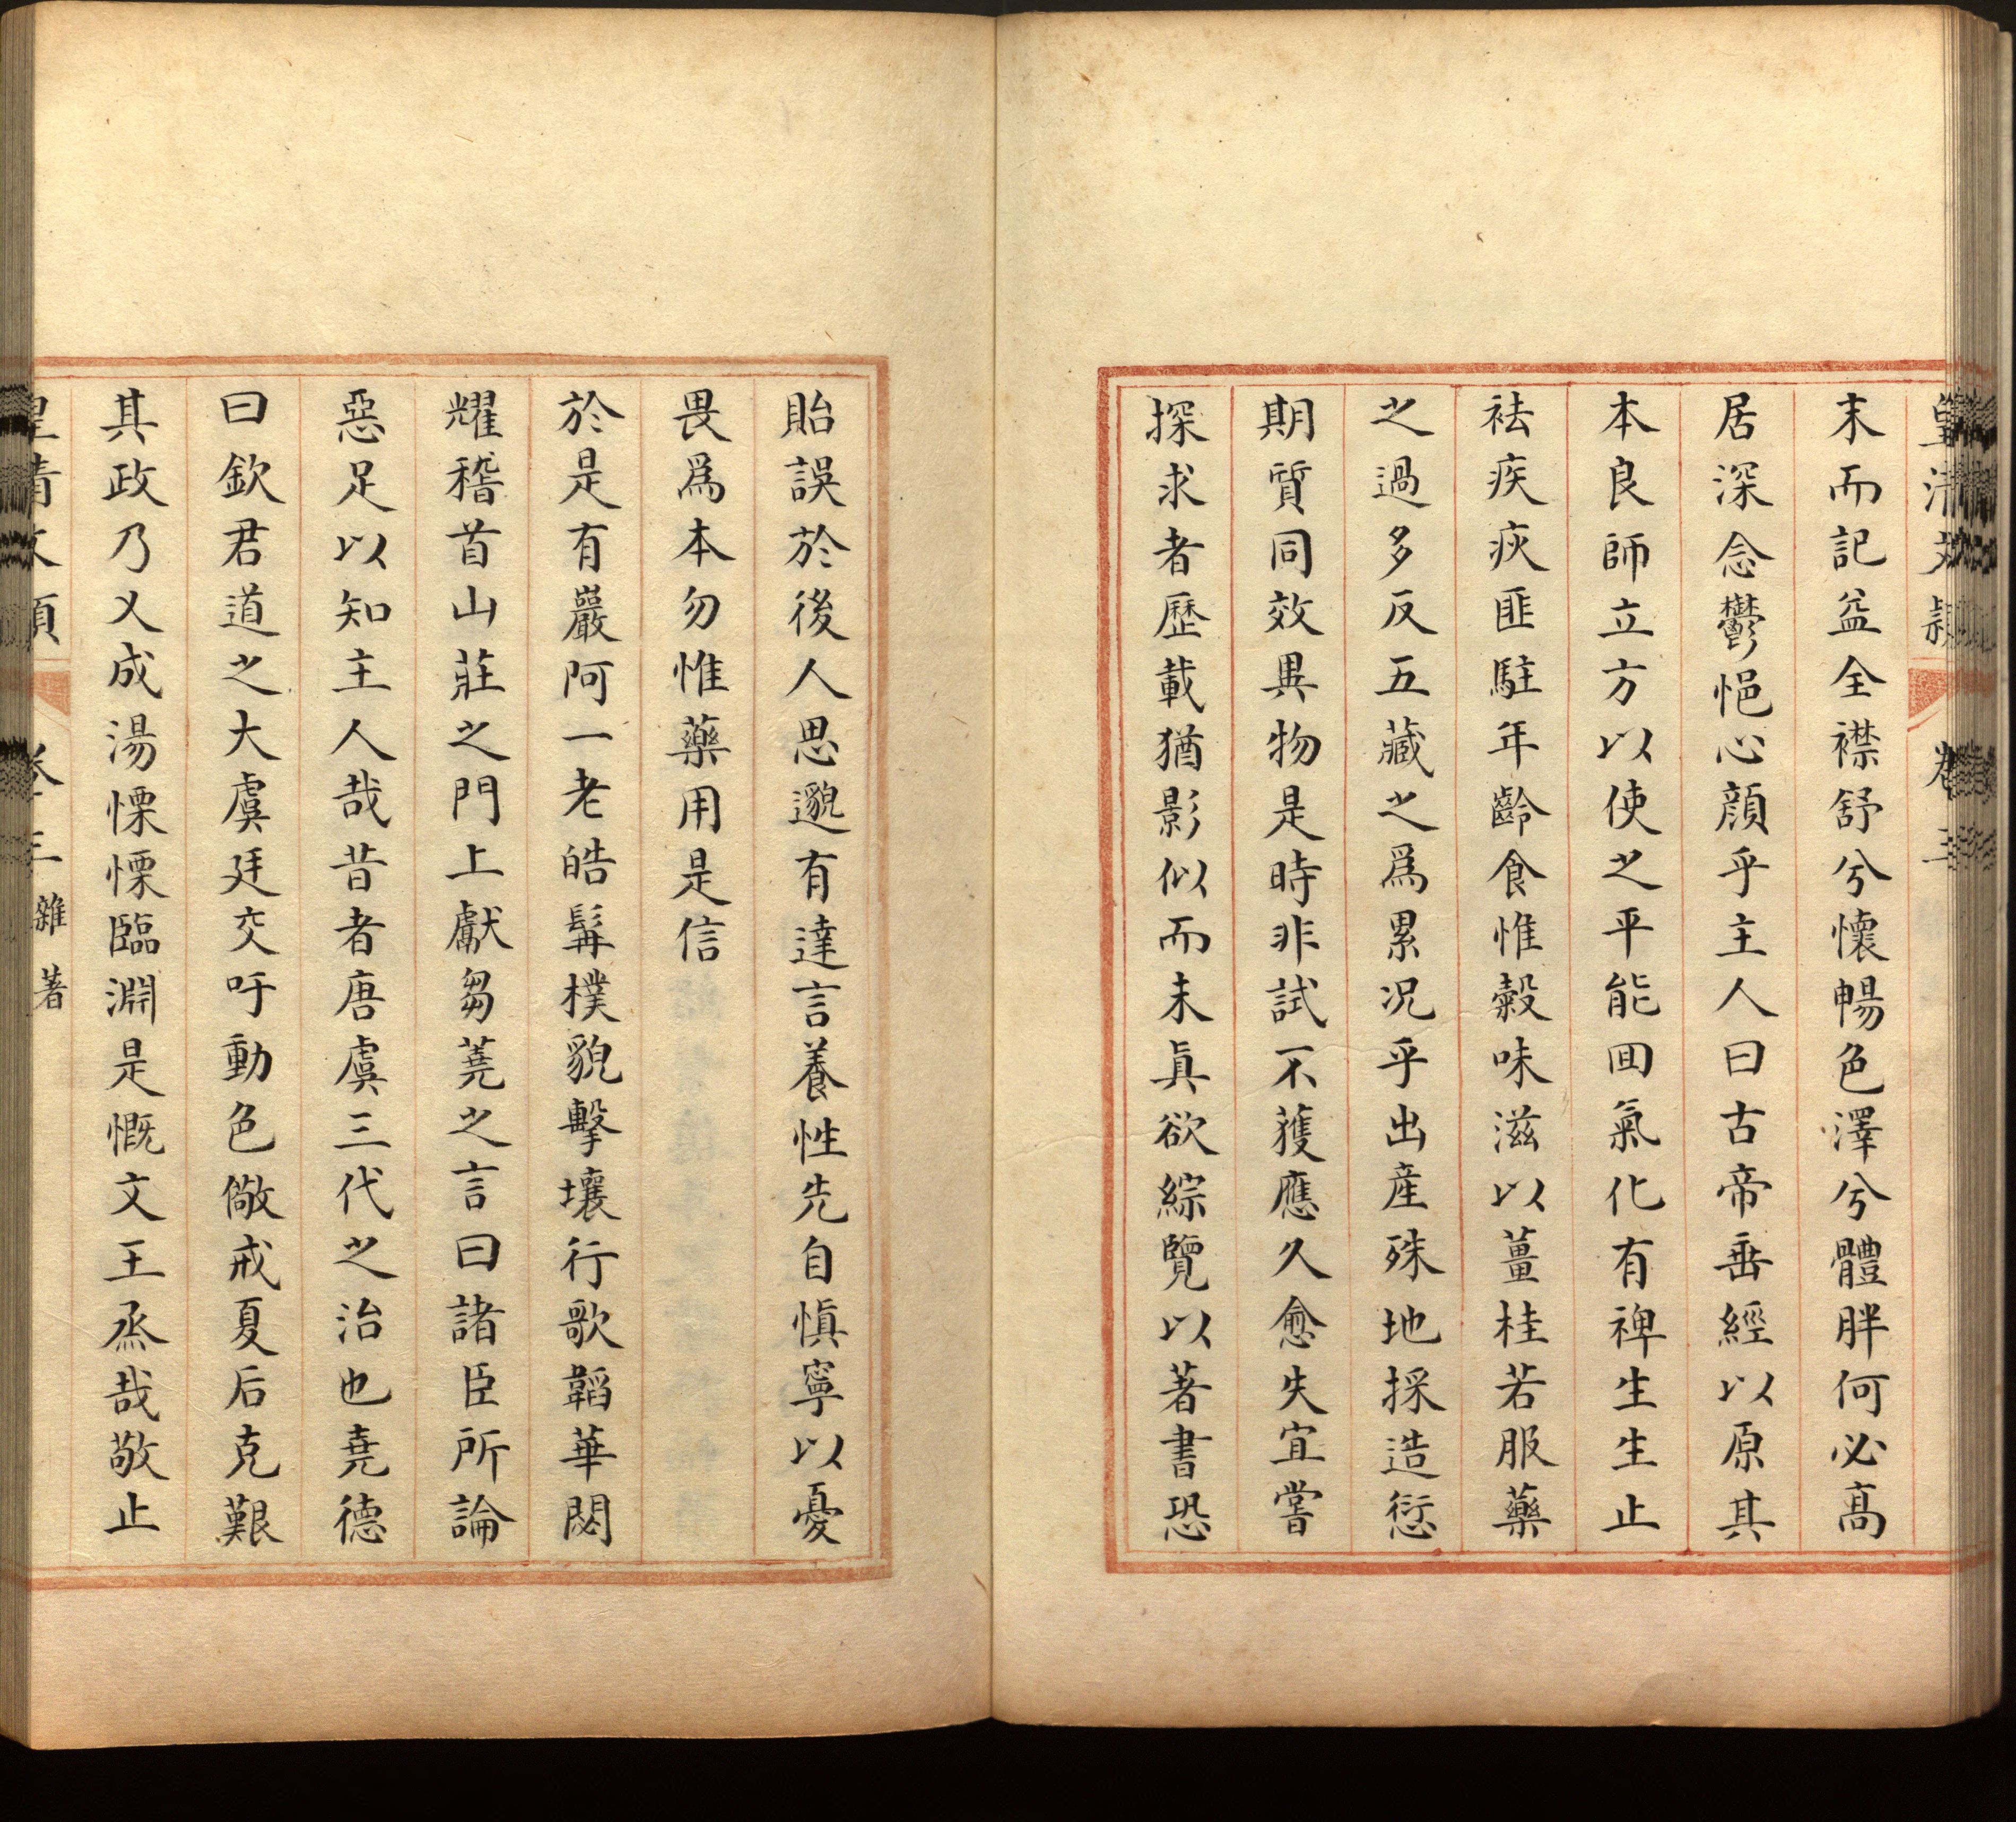 皇清文穎 卷三
末而記益全襟舒兮懷暢色澤兮體胖何必高
居深念鬱悒心顔乎主人曰古帝垂經以原其
本良師立方以使之平能回氣化有裨生生止
袪疾疢匪駐年齡食惟糓味滋以薑桂若服藥
之過多反五藏之爲累况乎出産殊地採造愆
期質同效異物是時非試不獲應久愈失宜嘗
探求者歷載猶影似而未眞欲綜覽以著書恐
貽誤於後人思邈有達言養性先自愼寧以憂
畏爲本勿惟藥用是信
於是有巖阿一老皓髯樸貌擊壤行歌韜華閟
耀稽首山莊之門上獻芻蕘之言曰諸臣所論
惡足以知主人哉昔者唐虞三代之治也堯德
曰欽君道之大虞廷交吁動色儆戒夏后克艱
其政乃乂成湯慄慄臨淵是慨文王烝哉敬止
皇清文穎 卷三 雜著